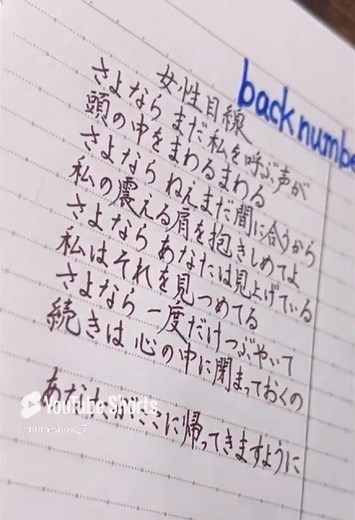 back numbe
女性目線
さよなら まだ私を呼ぶ声が
頭の中をまわるまわる
さよなら ねえまだ間に合うから
私の震える肩を抱きしめてよ
さよなら あなたは見上げている
私はそれを見つめてる
さよなら 一度だけつぶやいて
続きは 心の中に閉まっておくの
あなたがここに帰ってきますように
YouTube Shorts